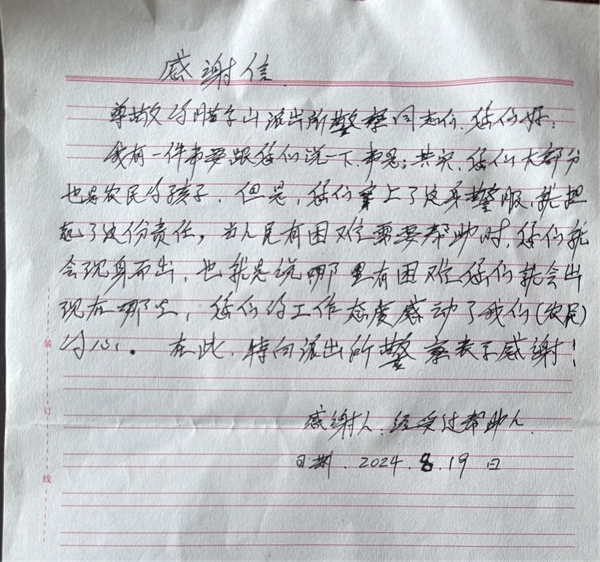 感谢信
尊敬的腊子山派出所警察同志们.您们好:
我有一件事要跟您们说一下.事是:其实.您们大部分
也是农民的孩子.但是,您们穿上了这身警服.就担
起了这份责任,当人民有困难需要帮助时.您们就
会现身而出,也就是说哪里有困难您们就会出
现在哪里,您们的工作态度感动了我们(农民)
的心。在此.特向派出所警察表示感谢!
感谢人.经受过帮助人.
日期.2024.8.19日
装
订
线